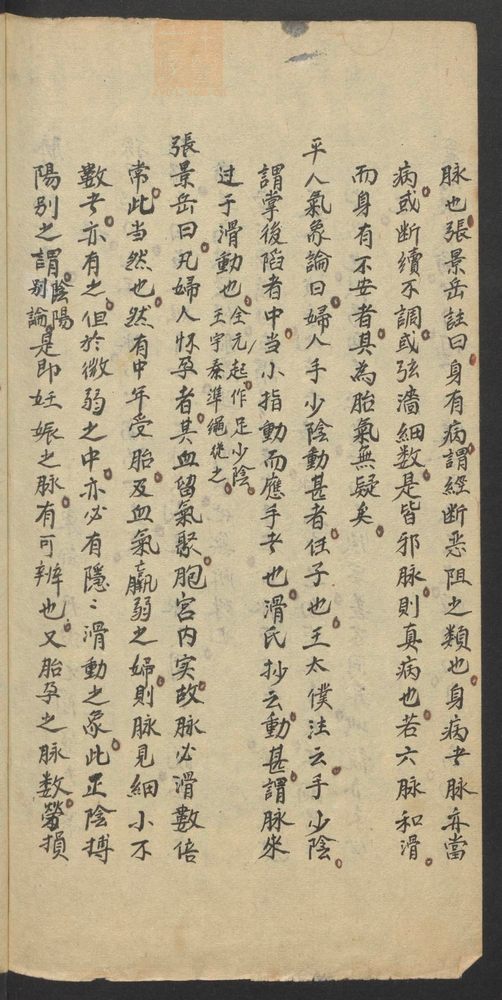 脉也張景岳註曰身有病謂經断恶阻之類也身病者脉亦當
病或断續不調或弦濇細数是皆邪脉則真病也若六脉和滑
而身有不安者其為胎氣無疑矣
平人氣象論曰婦人手少陰動甚者任子也王太僕注云手少陰
謂掌後陷者中当小指動而應手者也滑氏抄云動甚謂脉來
过于滑動也全元起作足少陰王宇泰準繩從之
張景岳曰凡婦人怀孕者其血留氣聚胞宮内实故脉必滑數倍
常此当然也然有中年受胎及血氣羸弱之婦則脉見細小不
數者亦有之但於微弱之中亦必有隱〻滑動之象此正陰搏
陽别之謂陰陽别論是即妊娠之脉有可辨也又胎孕之脉数勞損